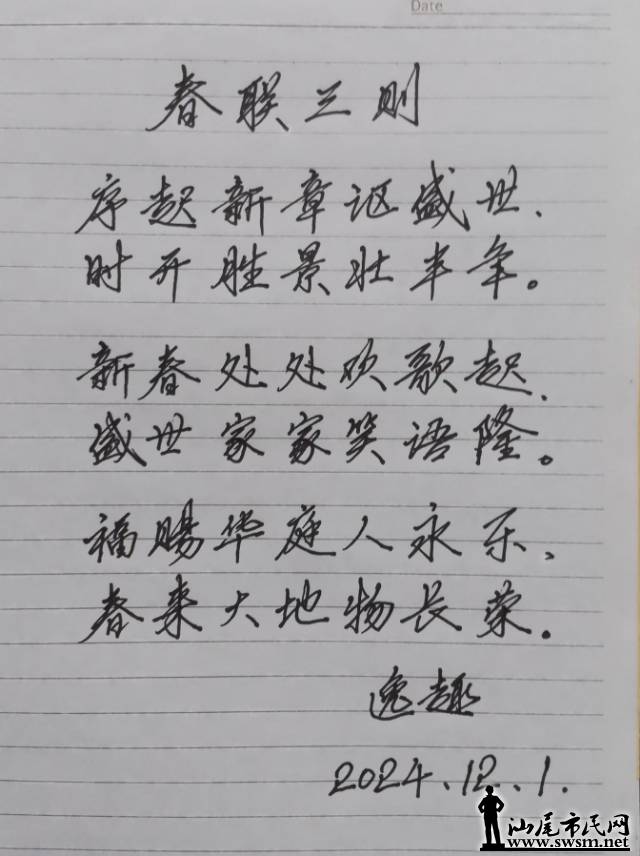 Date
春联三则
序起新章讴盛世、
时开胜景壮丰年。
新春处处欢歌起、
盛世家家笑语隆。
福赐华庭人永乐、
春来大地物长荣。
逸趣
2024.12.1.
汕尾市民网
www.swsm.net